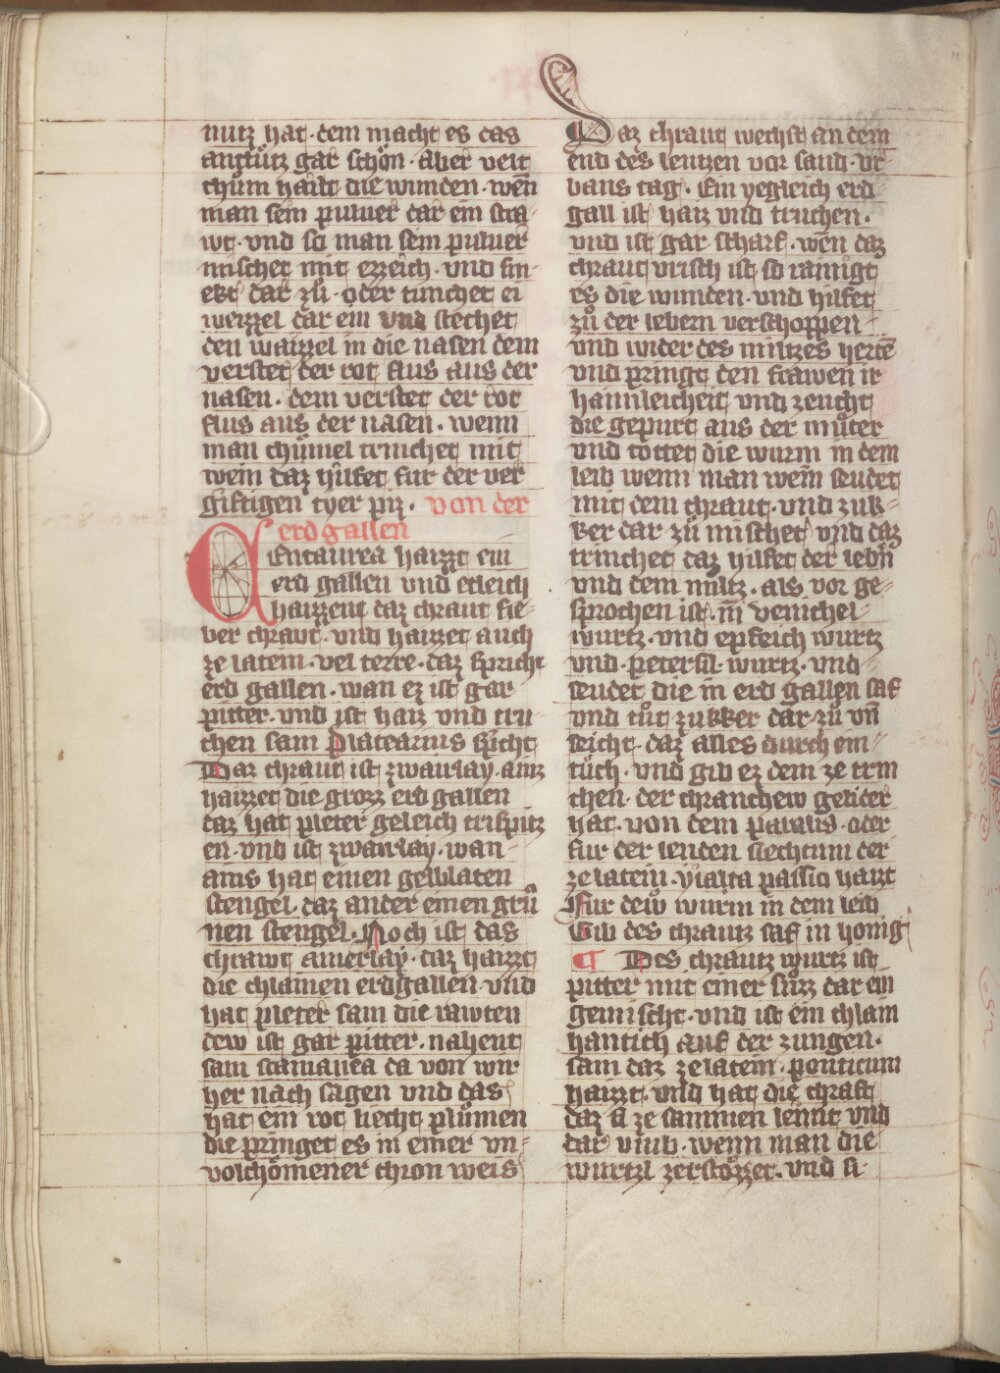 nutz hat · dem macht es das
antlütz gar schön · Aber veit
chům hailt die wunden · weñ
man sein puluer dar ein strä
wt · vnd so man sein puluer
mischet mit ezzeich · vnd sm
ekt dar zů · oder tunchet ei
weizzel dar ein vnd stechet
den waizzel in die nasen dem
verstet der rot flus aus der
nasen · dem verstet der rot
flus aus der nasen · wenn
man chümel trinchet mit
wein daz hilfet fur der ver
giftigen tyer piz · von der
erdgallen
Centaurea haizzt ein
erd gallen vnd etleich
haizzent daz chraut fie-
ber chraut · vnd haizzet auch
ze latein · vel terre · daz spricht
erd gallen · wan ez ist gar
pitter · vnd ist haiz vnd tru
chen sam Platearius spricht
Daz chraut ist zwairlay · ainz
haizzet die grozz erd gallen
daz hat pleter geleich trispitz
en · vnd ist zwairlay · wan
ains hat einen gelblaten
stengel · daz ander einen grů
nen stengel · Noch ist das
chrawt ainerlay · daz haizzt
die chlainen erdgallen · vnd
hat pleter sam die rawten
dew ist gar pitter · nahent
sam scamanea da von wir
her nach sagen vnd das
hat ein rot liecht plůmen
die pringet es in einer vn-
volchömener chron weis
Daz chraut wechst an dem
end des lentzen vor sand · vr
bans tag · Ein yegleich erd
gall ist haiz vnd truchen ·
vnd ist gar scharf · weñ daz
chraut vrisch ist so rainigt
es die wunden · vnd hilfet
zů der lebern verschoppen
vnd wider des miltzes herte
vnd pringt den frawen ir
haimleicheit vnd zeucht
die gepurt aus der můter
vnd tottet die wurm in dem
leib wenn man wein seudet
mit dem chraut · vnd zuk-
ker dar zů mischet vnd daz
trinchet daz hilfet der lebñ
vnd dem miltz · als vor ge-
sprochen ist · m̄ venichel
wurtz · vnd epfeich wurtz
vnd · petersil · wurtz · vnd
seudet die in erd gallen saf
vnd tůt zukker dar · zů vñ
seicht · daz alles durch ein
tůch · vnd gib ez dem ze trin
chen · der chranchew gelider
hat · von dem paralis · oder
fur der lenden siechtum der
ze latein · yliaita passio haizt
Für dew wurm in dem leib
Gib des chrautz saf in honig
¶ Des chrautz wurtz ist
pitter mit einer süzz dar ein
gemischt · vnd ist ein chlain
hantich auf der zungen ·
sam daz ze latein · ponticum
haizzt · vnd hat die chraft
daz si ze sammen leimt vnd
dar vmb · wenn man die
wurtzl zerstözzet · vnd si